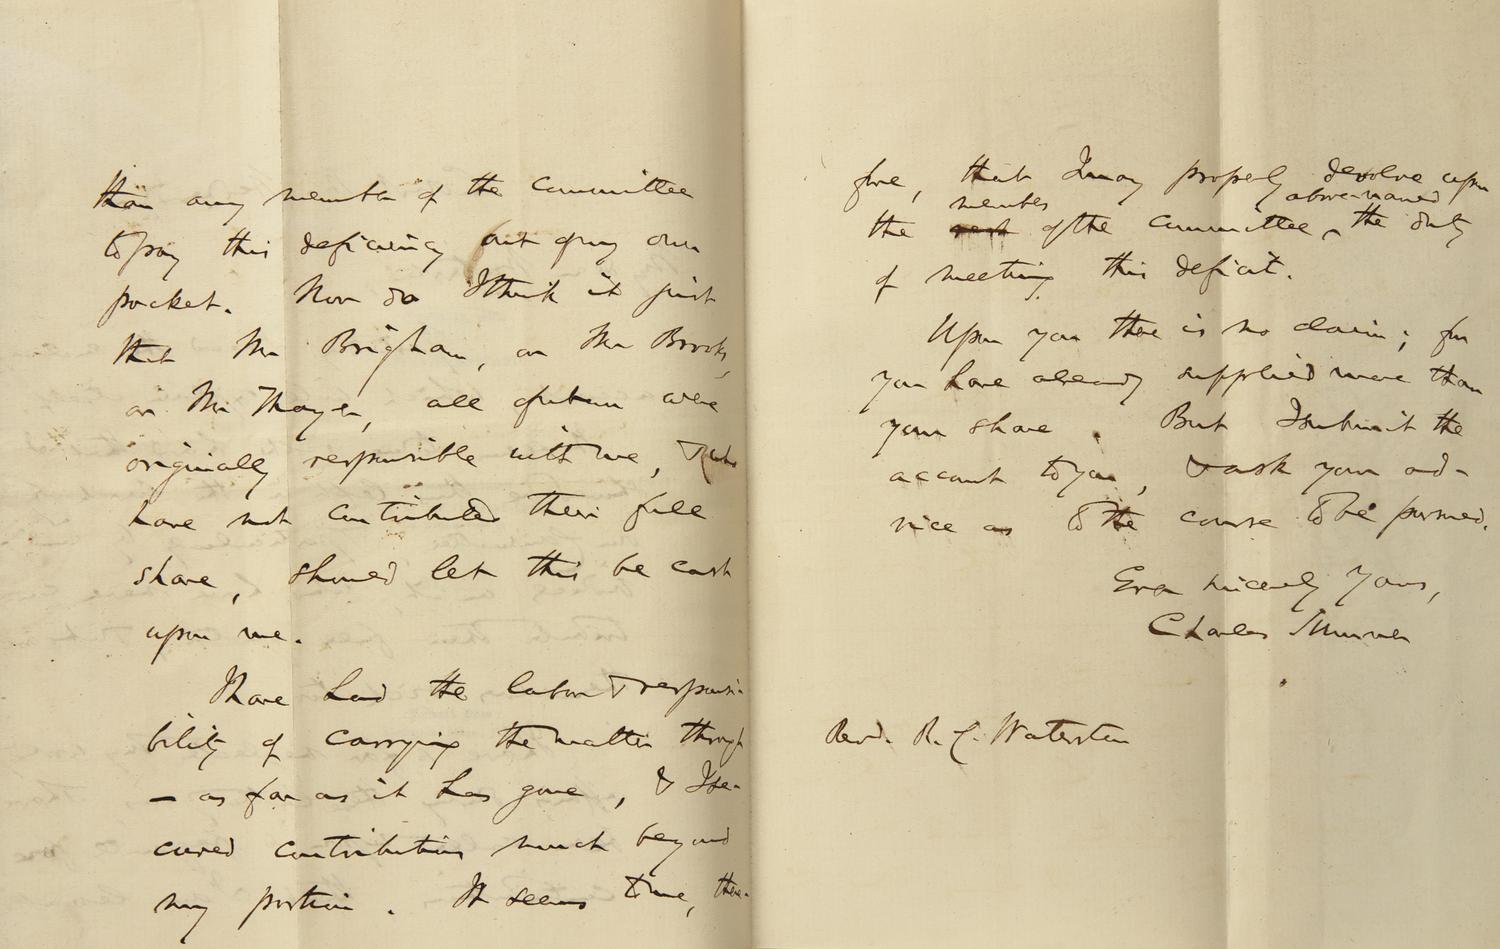 than any member of the Committee
to pay this deficiency out of my own
pocket. Nor do I think it just
that Mr Brigham, or Mr Brooks,
or Mr Thayer, all of whom were
originally responsible with me, & who
have not contributed their full
share, should let this be cast
upon me.
I have had the labor & responsi-
bility of carrying the matter through
— as far as it has gone, & I se-
cured contributions much beyond
my portion. It seems to me, there-
fore, that I may properly devolve upon
member above-named
the rest of the Committee, the duty
of meeting this deficit.
Upon you there is no claim; for
you have already supplied more than
your share. But I submit the
account to you, & ask your ad-
vice as to the course to be pursued.
Ever sincerely Yours,
Charles Sumner
Revd. R. C. Waterston